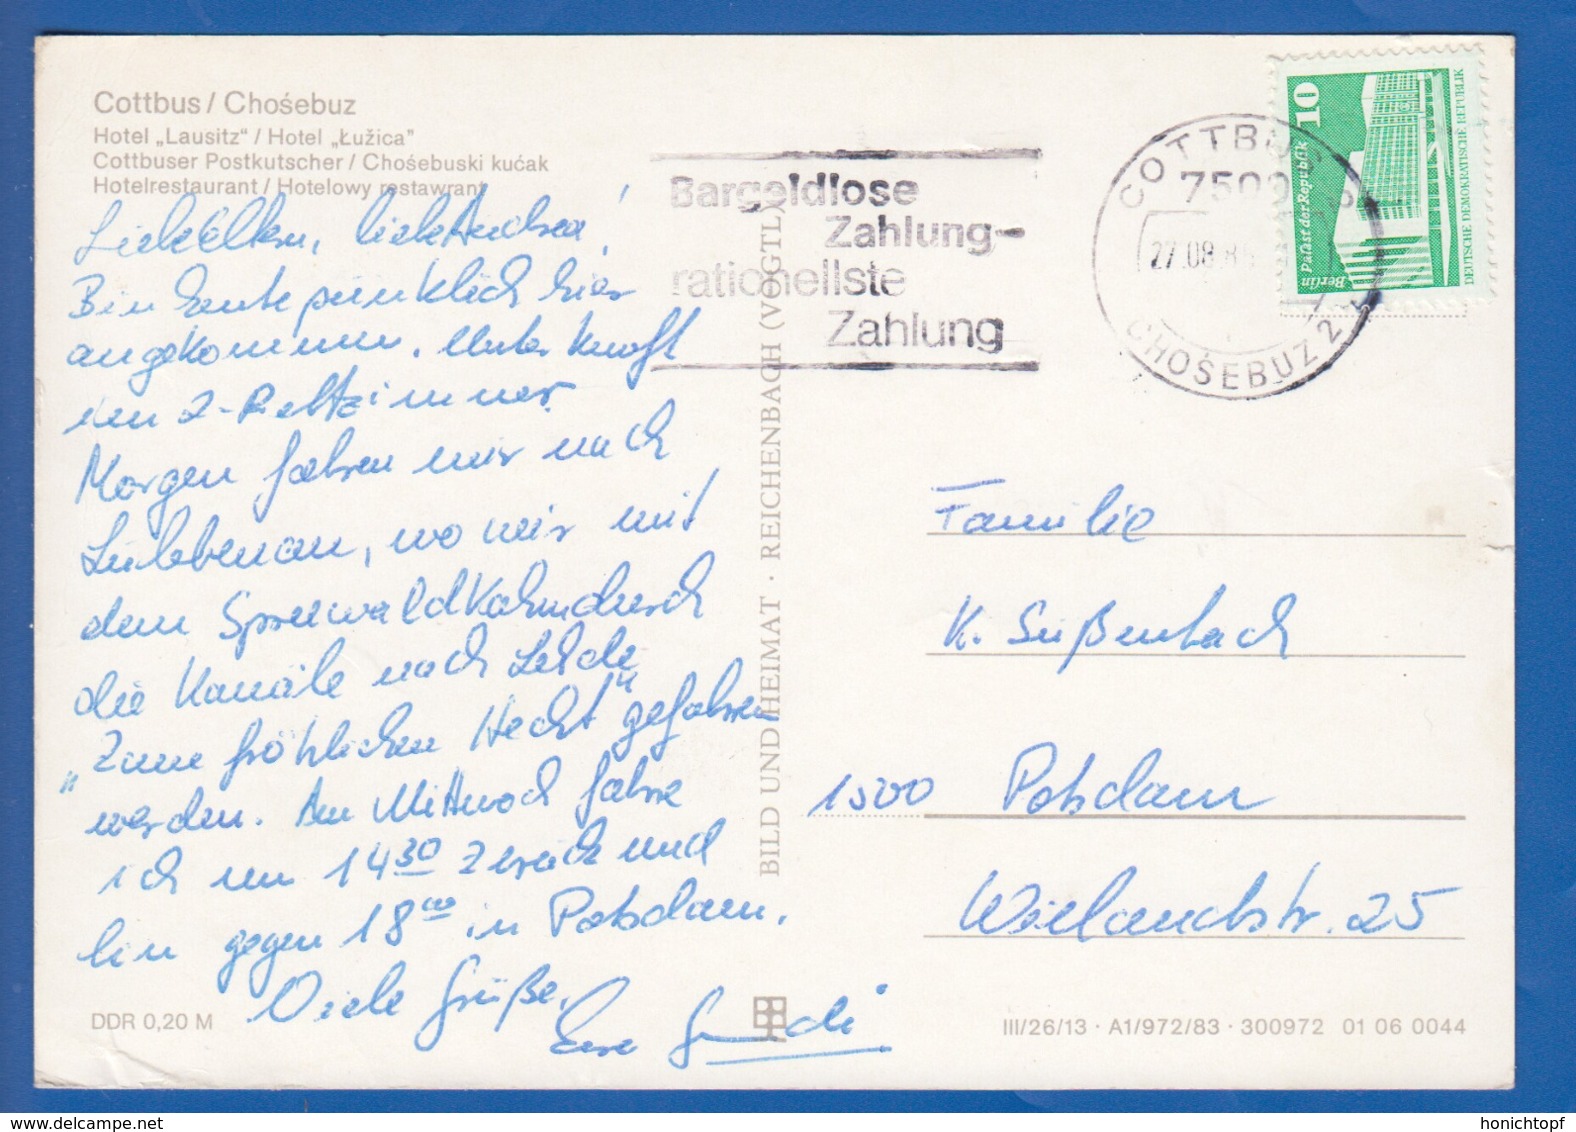 Cottbus / Chośebuz
Hotel „Lausitz“ / Hotel „Łužica“
Cottbuser Postkutscher / Chośebuski kućak
Hotelrestaurant / Hotelowy restawrant
Liebe Eltern, liebe Andrea!
Bin heute pünktlich hier
angekommen. Unterkunft
im 2-Bettzimmer.
Morgen fahren wir nach
Lübbenau, wo wir mit
dem Spreewaldkahn durch
die Kanäle nach Lehde
„Zum fröhlichen Hecht“ gefahren
werden. Am Mittwoch fahre
ich um 14 30 zurück und
bin gegen 18 00 in Potsdam.
Viele Grüße,
DDR 0,20 M
BILD UND HEIMAT · REICHENBACH (VOGTL)
Bargeldlose
Zahlung-
rationellste
Zahlung
COTTBUS
7500
27.08.8
CHOŚEBUZ 2
10
Palast der Republik
Berlin
DEUTSCHE DEMOKRATISCHE REPUBLIK
Familie
K. Süßenbach
1500 Potsdam
Wielandstr. 25
III/26/13 · A1/972/83 · 300972 01 06 0044
honichtopf